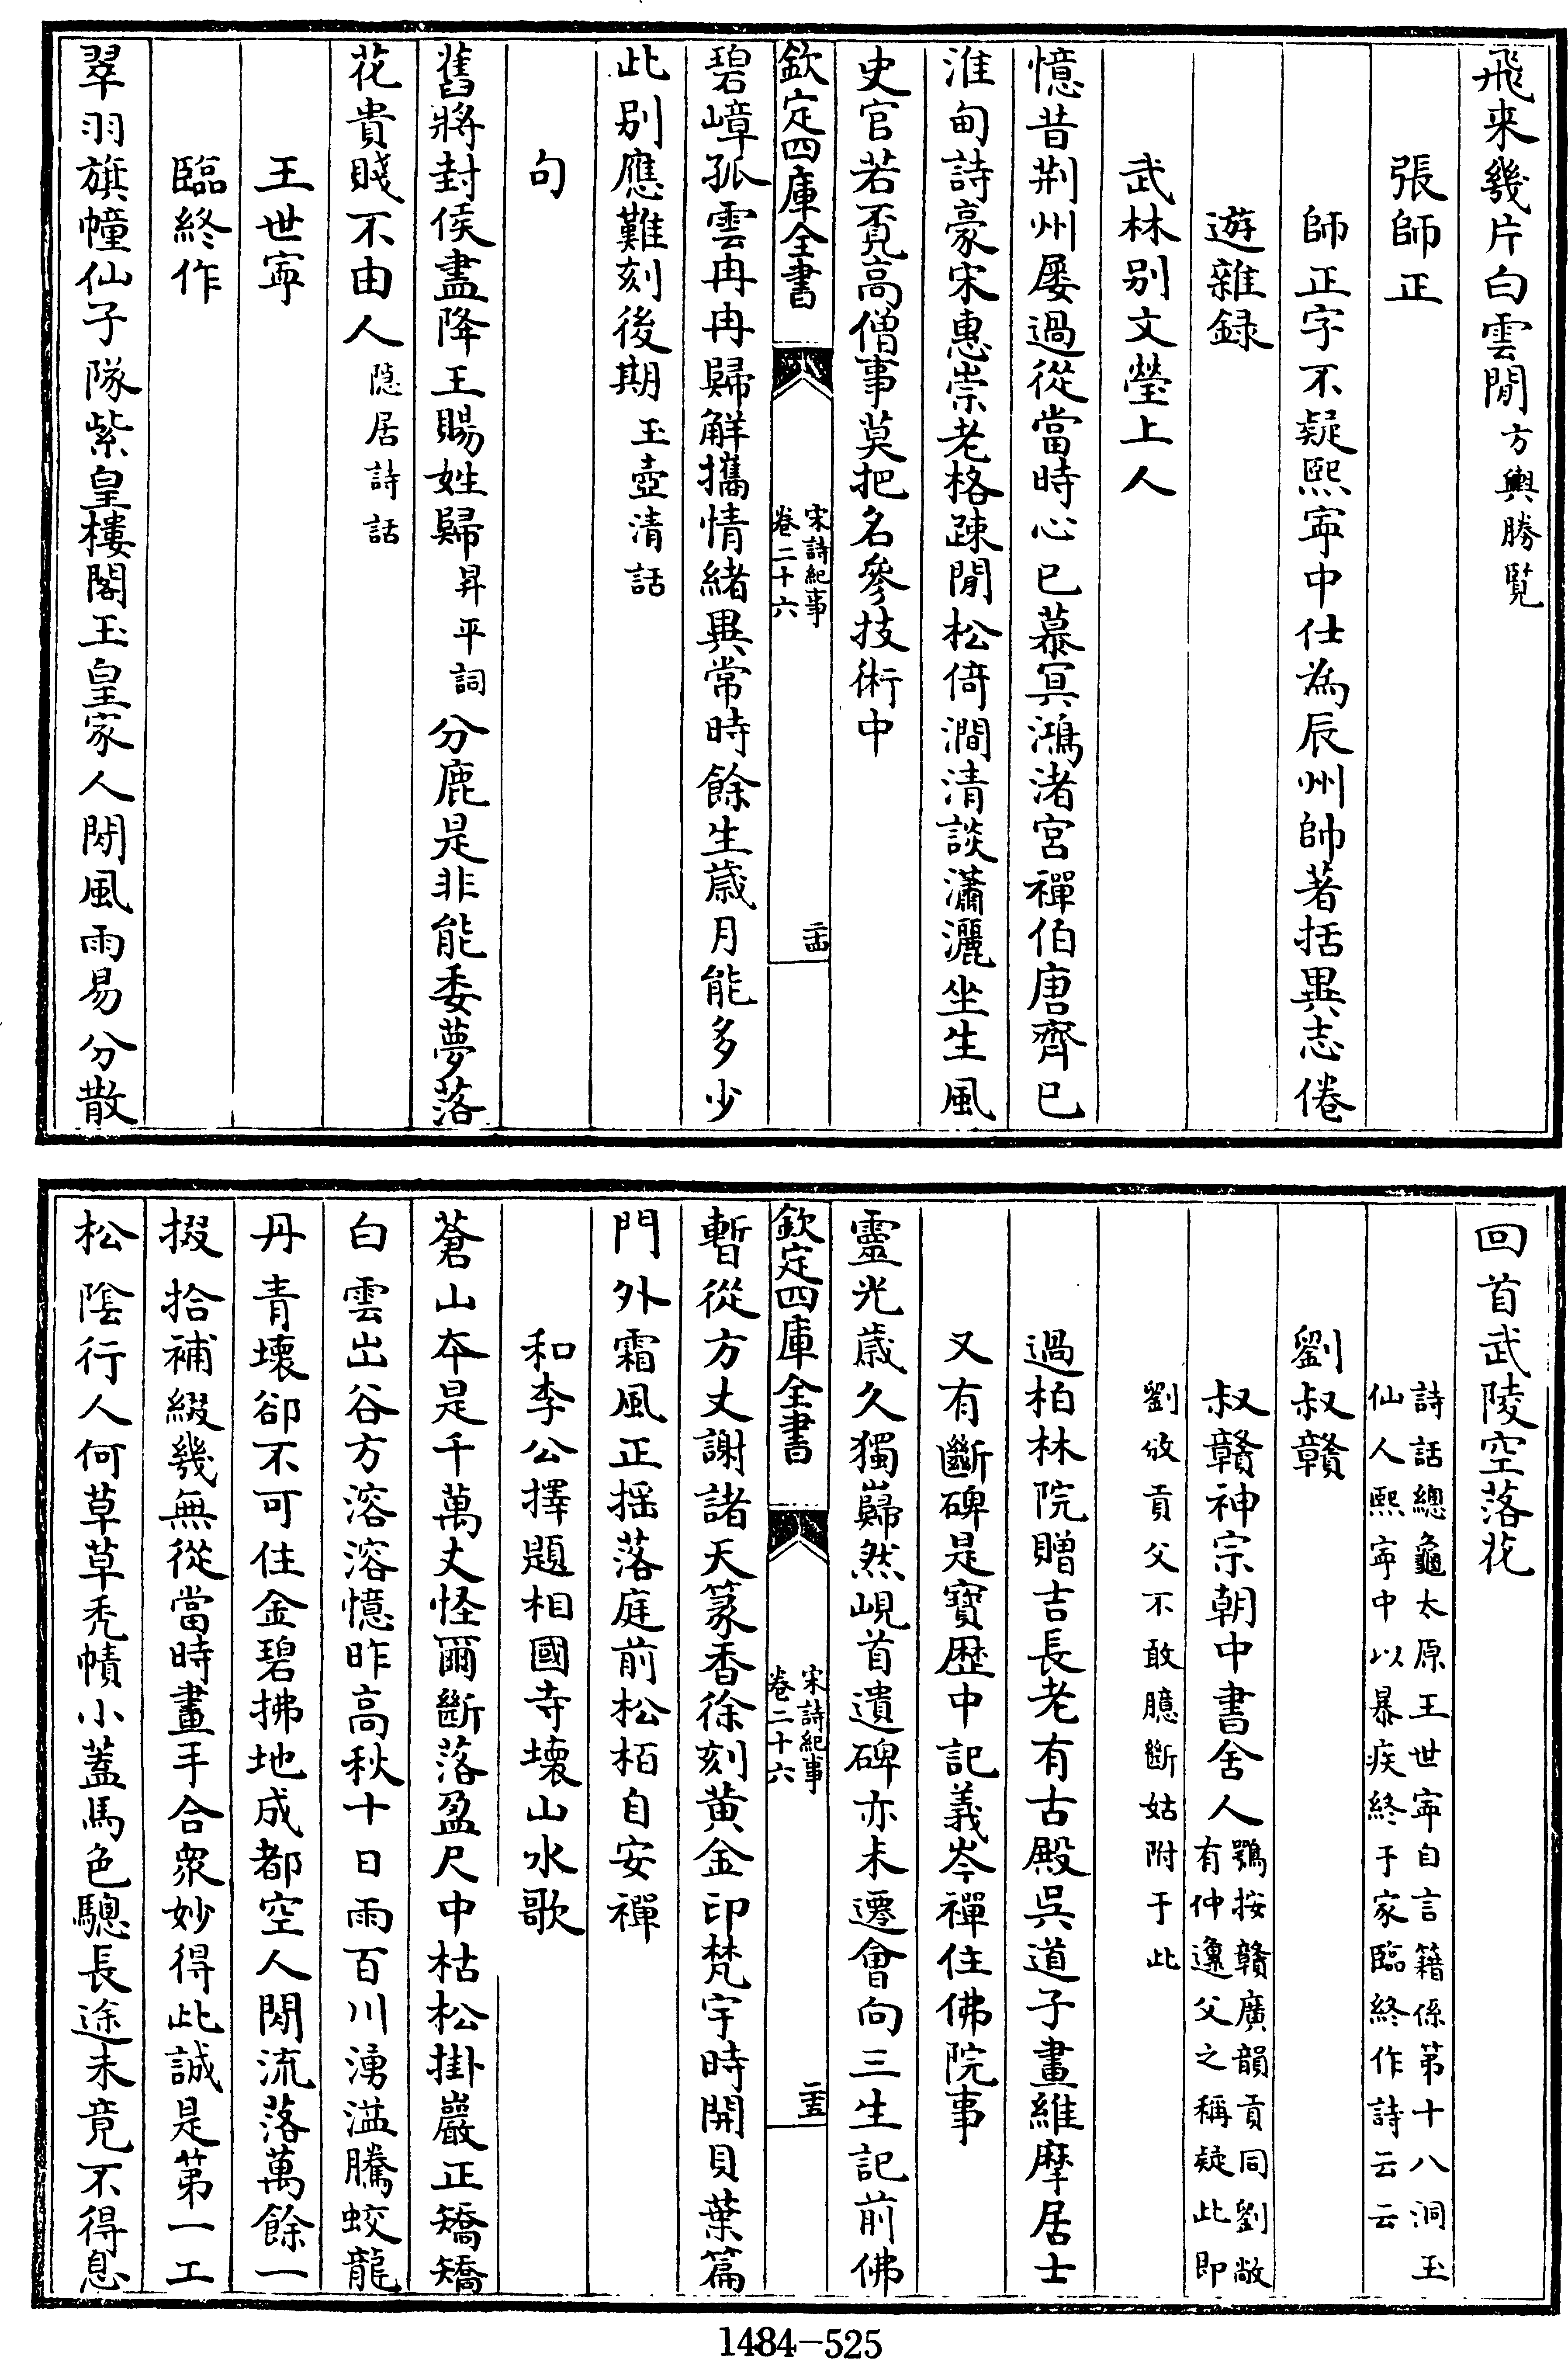 飛来幾片白雲閒方輿勝覧
張師正
師正字不疑熙寜中仕為辰州帥著括異志倦
遊雜録
武林別文瑩上人
憶昔荆州屡過從當時心已慕冥鴻渚宮禪伯唐齊已
淮甸詩豪宋惠崇老格疎閒松倚澗清談瀟灑坐生風
史官若覔高僧事莫把名參技術中
欽定四庫全書
宋詩紀事
卷二十六
二十四
碧嶂孤雲冉冉歸解攜情緒異常時餘生歲月能多少
此别應難刻後期玉壺清話
句
舊將封侯盡降王賜姓歸昇平詞分鹿是非能委夢落
花貴賤不由人隠居詩話
王世寜
臨終作
翠羽旗幢仙子隊紫皇樓閣玉皇家人閒風雨易分散
回首武陵空落花
詩話總龜太原王世寜自言籍係第十八洞玉
仙人熙寜中以暴疾終于家臨終作詩云云
劉叔贛
叔贛神宗朝中書舍人
鶚按贛廣韻貢同劉敞
有仲邍父之稱疑此即
劉攽貢父不敢臆斷姑附于此
過柏林院贈吉長老有古殿吳道子畫維摩居士
又有斷碑是寶歴中記義岑禪住佛院事
靈光歲久獨巋然峴首遺碑亦未遷會向三生記前佛
欽定四庫全書
宋詩紀事
卷二十六
二十五
暫從方丈謝諸天篆香徐刻黄金印梵宇時開貝葉篇
門外霜風正揺落庭前松栢自安禪
和李公擇題相國寺壊山水歌
蒼山夲是千萬丈怪爾斷落盈尺中枯松掛巖正矯矯
白雲出谷方溶溶憶昨高秋十日雨百川湧溢騰蛟龍
丹青壊卻不可住金碧拂地成都空人閒流落萬餘一
掇拾補綴幾無從當時畫手合衆妙得此誠是第一工
松隂行人何草草禿幘小蓋馬色驄長途未竟不得息
1484-525